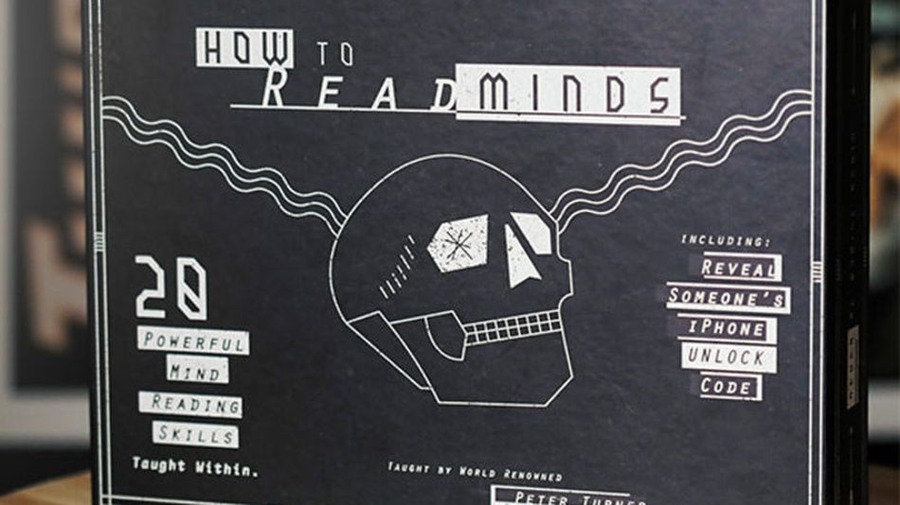 HOW TO
READ MINDS
20
POWERFUL
MIND
READING
SKILLS
Taught Within.
INCLUDING:
REVEAL
SOMEONE'S
iPHONE
UNLOCK
CODE
TAUGHT BY WORLD RENOWNED
PETER TURNER